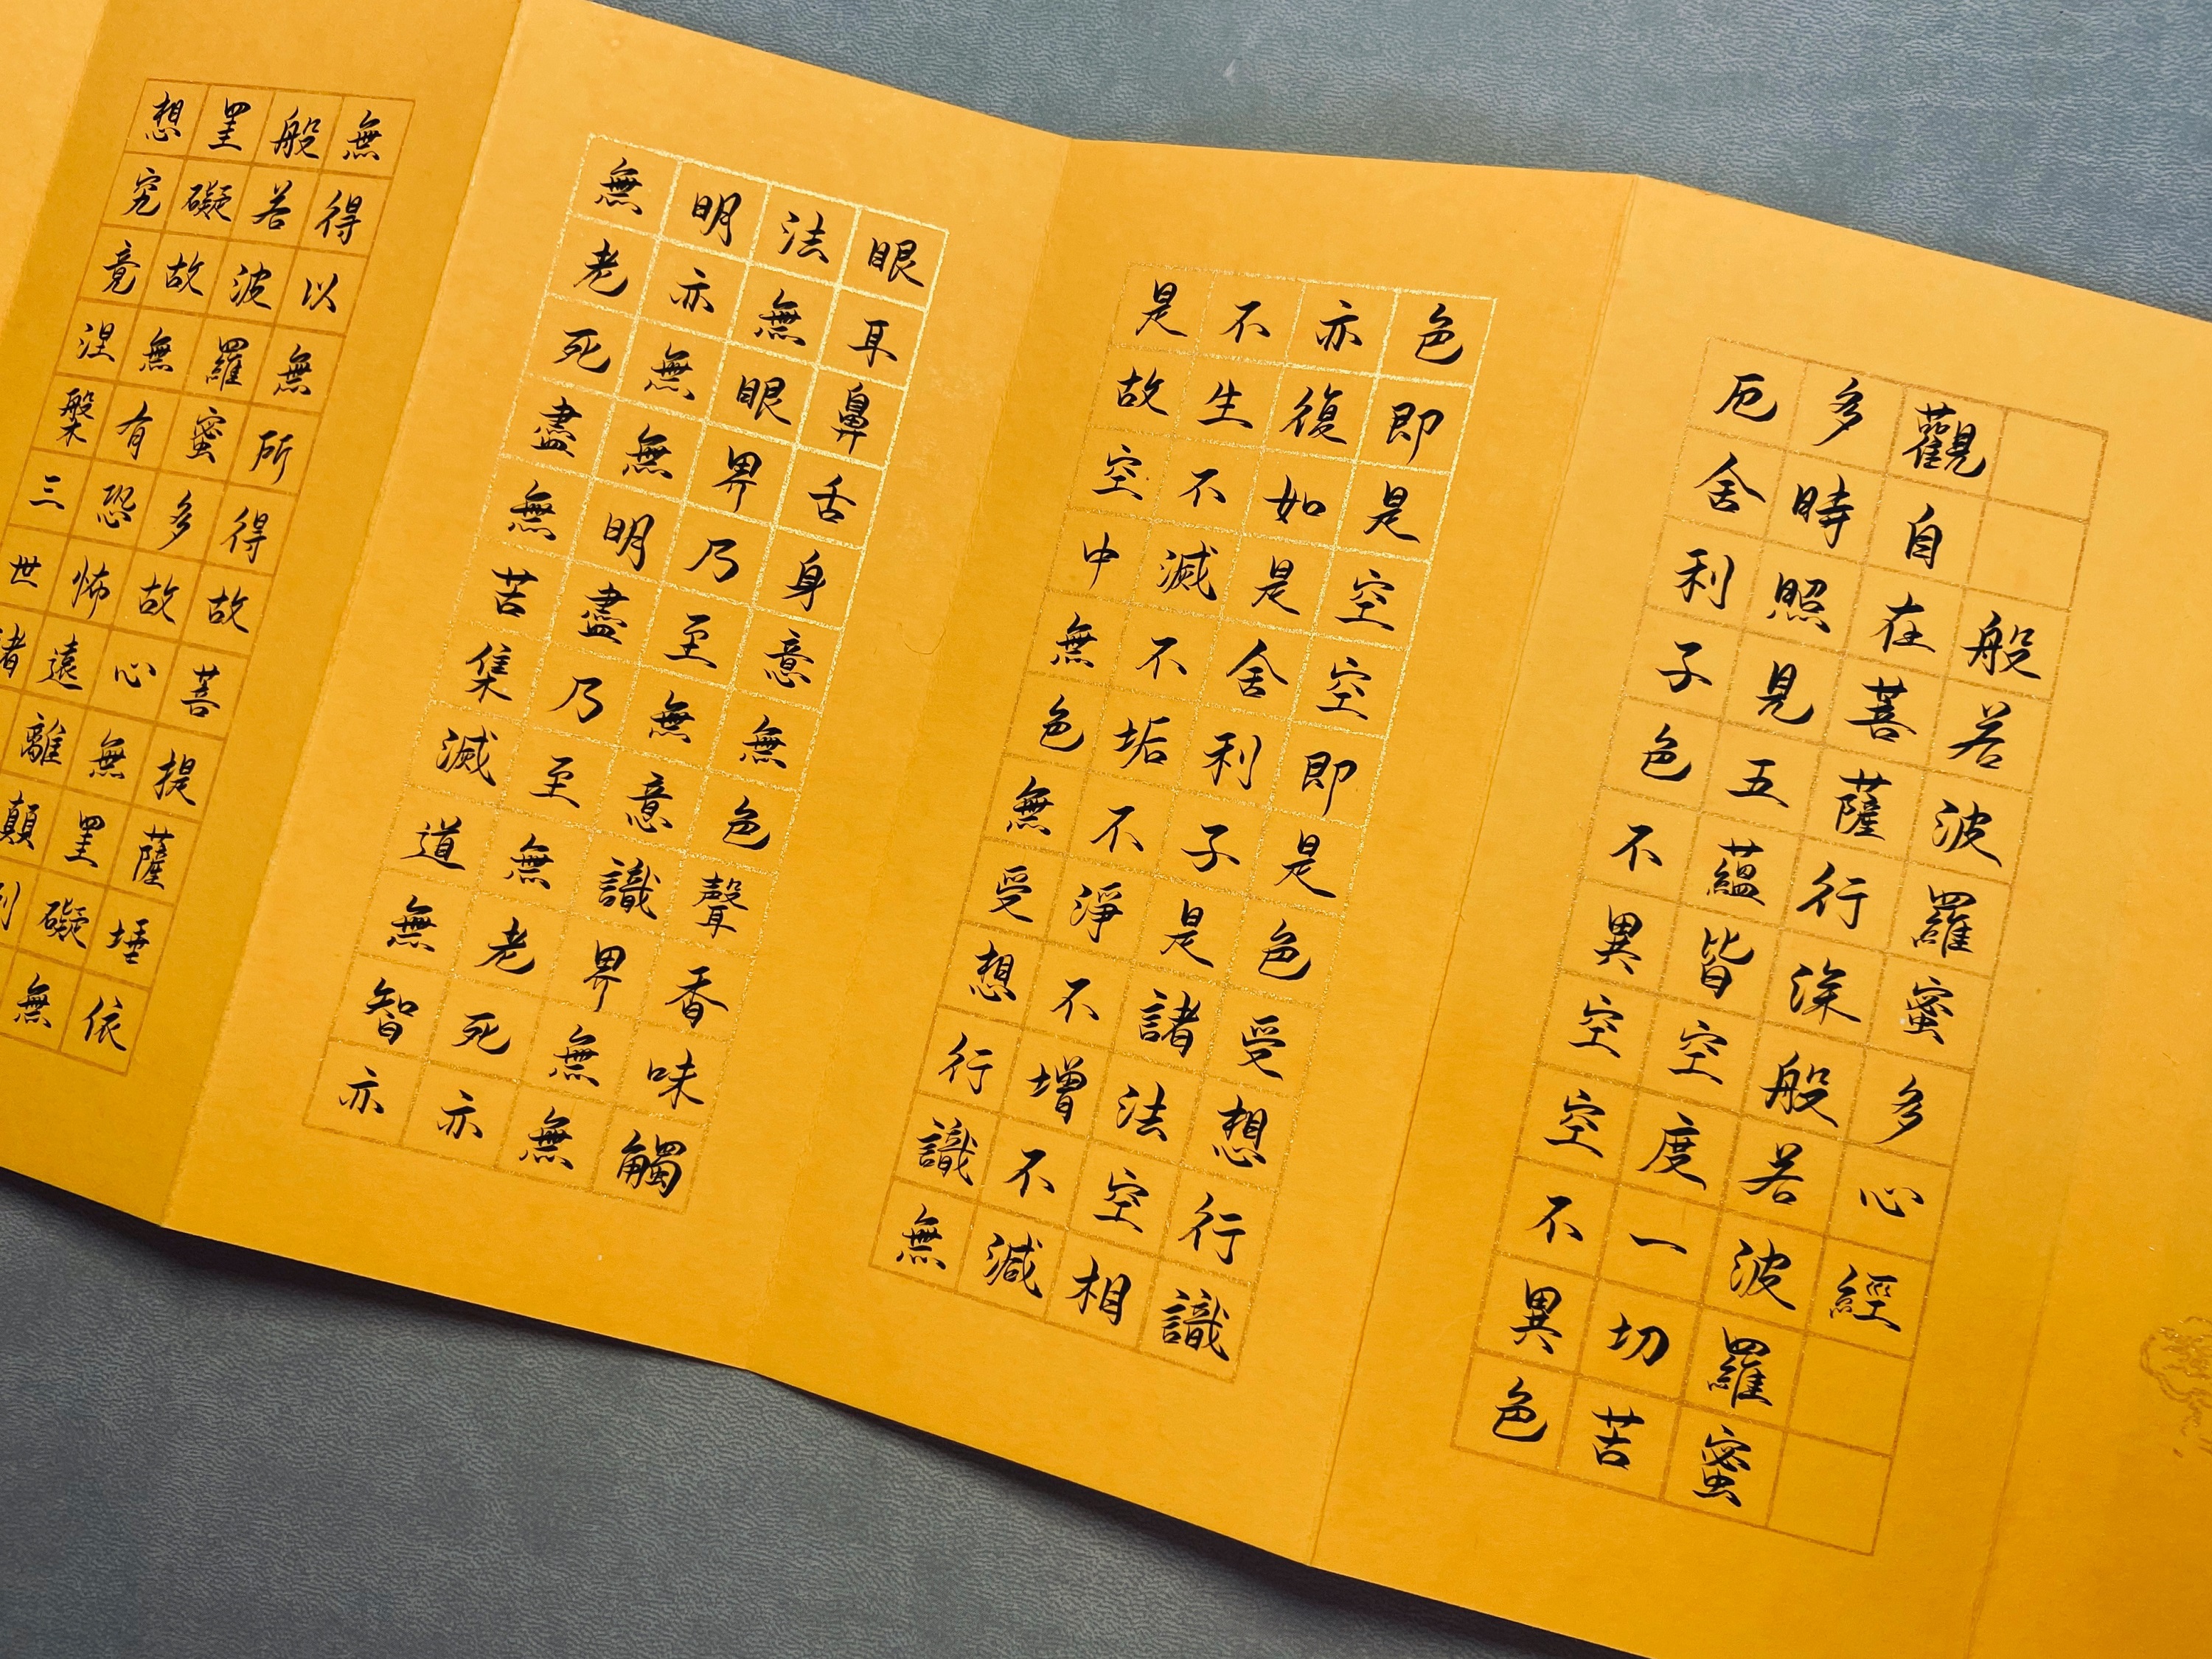 般若波羅蜜多心經
觀自在菩薩行深般若波羅蜜
多時照見五蘊皆空度一切苦
厄舍利子色不異空空不異色
色即是空空即是色受想行識
亦復如是舍利子是諸法空相
不生不滅不垢不淨不增不減
是故空中無色無受想行識無
眼耳鼻舌身意無色聲香味觸
法無眼界乃至無意識界無無
明亦無無明盡乃至無老死亦
無老死盡無苦集滅道無智亦
無得以無所得故菩提薩埵依
般若波羅蜜多故心無罣礙無
罣礙故無有恐怖遠離顛
想究竟涅槃三世諸